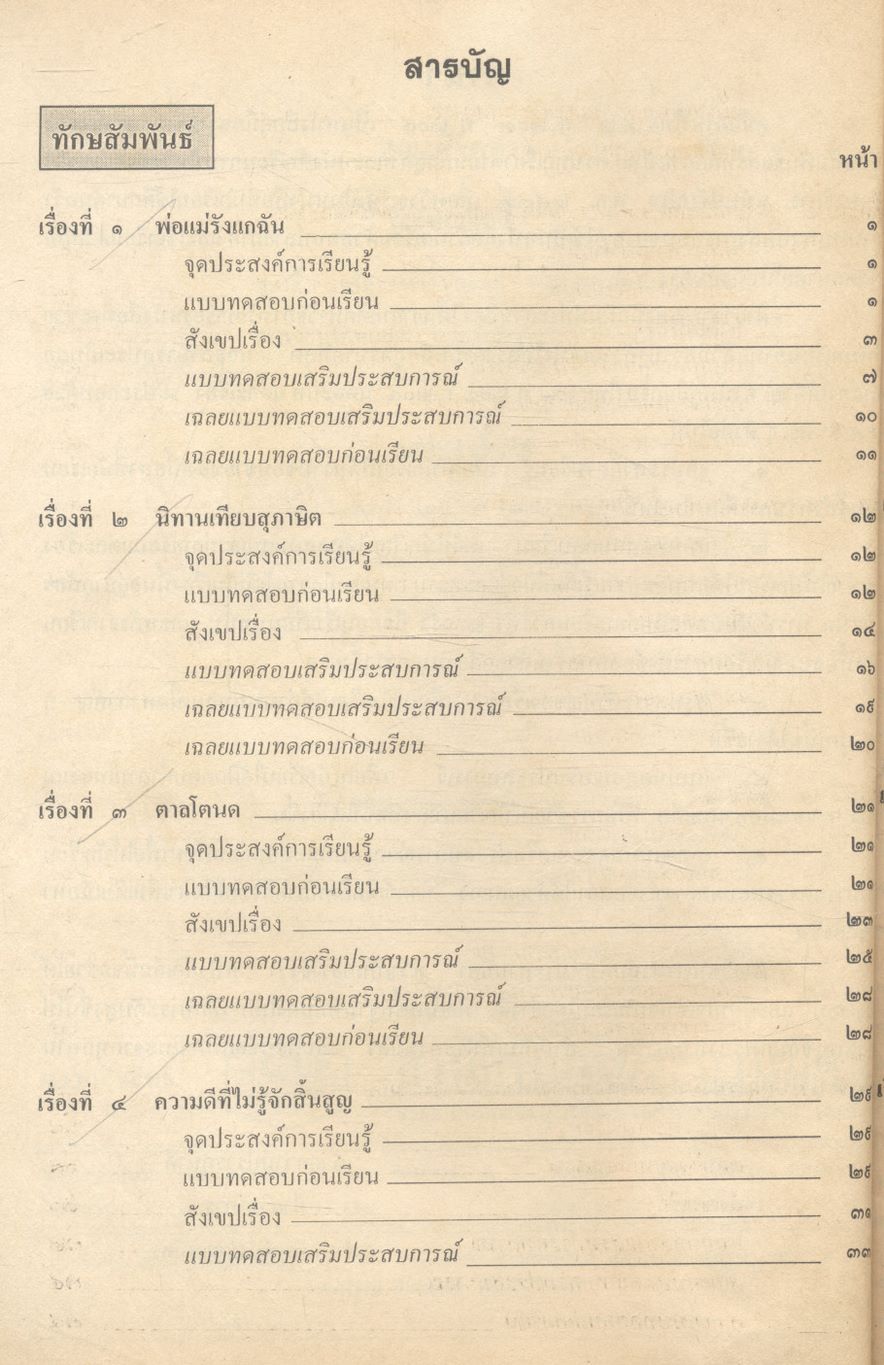 สารบัญ
ทักษสัมพันธ์
หน้า
เรื่องที่ ๑ พ่อแม่รังแกฉัน ๑
จุดประสงค์การเรียนรู้ ๑
แบบทดสอบก่อนเรียน ๑
สังเขปเรื่อง ๓
แบบทดสอบเสริมประสบการณ์ ๗
เฉลยแบบทดสอบเสริมประสบการณ์ ๑๐
เฉลยแบบทดสอบก่อนเรียน ๑๑
เรื่องที่ ๒ นิทานเทียบสุภาษิต ๑๒
จุดประสงค์การเรียนรู้ ๑๒
แบบทดสอบก่อนเรียน ๑๒
สังเขปเรื่อง ๑๔
แบบทดสอบเสริมประสบการณ์ ๑๖
เฉลยแบบทดสอบเสริมประสบการณ์ ๑๙
เฉลยแบบทดสอบก่อนเรียน ๒๐
เรื่องที่ ๓ ตาลโตนด ๒๑
จุดประสงค์การเรียนรู้ ๒๑
แบบทดสอบก่อนเรียน ๒๑
สังเขปเรื่อง ๒๓
แบบทดสอบเสริมประสบการณ์ ๒๕
เฉลยแบบทดสอบเสริมประสบการณ์ ๒๘
เฉลยแบบทดสอบก่อนเรียน ๒๘
เรื่องที่ ๔ ความดีที่ไม่รู้จักสิ้นสูญ ๒๙
จุดประสงค์การเรียนรู้ ๒๙
แบบทดสอบก่อนเรียน ๒๙
สังเขปเรื่อง ๓๑
แบบทดสอบเสริมประสบการณ์ ๓๓